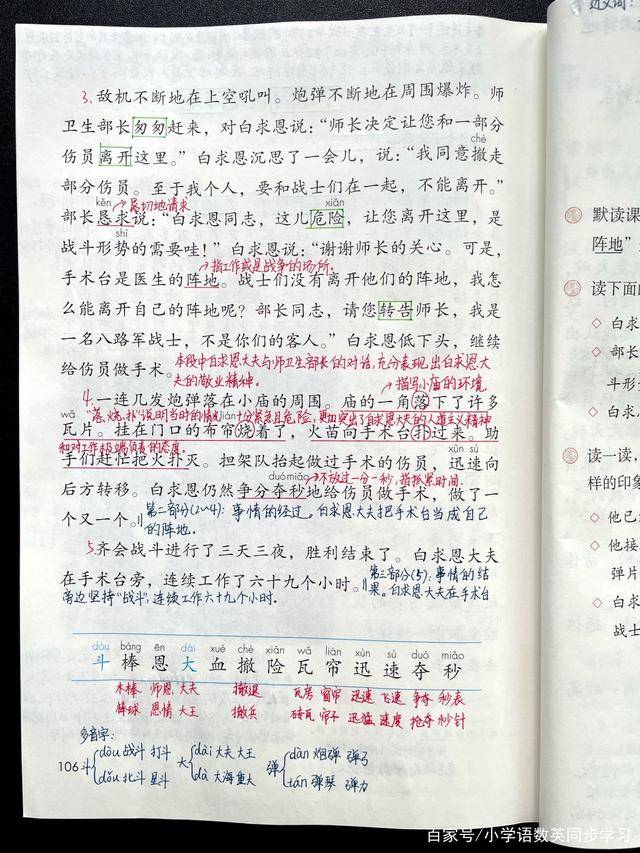 近义词:
3、敌机不断地在上空吼叫。炮弹不断地在周围爆炸。师
卫生部长匆匆赶来，对白求恩说：“师长决定让您和一部分
chè
伤员离开这里。”白求恩沉思了一会儿，说：“我同意撤走
部分伤员。至于我个人，要和战士们在一起，不能离开。”
kěn 恳切地请求 xiǎn
部长恳求说：“白求恩同志，这儿危险，让您离开这里，是
shì
战斗形势的需要哇！”白求恩说：“谢谢师长的关心。可是，
指工作或是战争的场所。
手术台是医生的阵地。战士们没有离开他们的阵地，我怎
么能离开自己的阵地呢？部长同志，请您转告师长，我是
一名八路军战士，不是你们的客人。”白求恩低下头，继续
给伤员做手术。
本段中白求恩大夫与师卫生部长的对话，充分表现出白求恩大
夫的敬业精神。
描写小庙的环境
4.一连几发炮弹落在小庙的周围。庙的一角落下了许多
“落、烧、扑”说明当时的情况十分紧急且危险，更加突出了白求恩大夫的人道主义精神
wǎ lián
瓦片。挂在门口的布帘烧着了，火苗向手术台扑过来。助
和对工作极端负责的态度。
xùn sù
手们赶忙把火扑灭。担架队抬起做过手术的伤员，迅速向
duó miǎo 不放过一分一秒，指抓紧时间
后方转移。白求恩仍然争分夺秒地给伤员做手术，做了一
个又一个。
第二部分(2~4)：事情的经过。白求恩大夫把手术台当成自己
的阵地。
5.齐会战斗进行了三天三夜，胜利结束了。白求恩大夫
在手术台旁，连续工作了六十九个小时。
第三部分(5)：事情的结
果。白求恩大夫在手术台
旁边坚持“战斗”，连续工作六十九个小时。
dòu bàng ēn dài xuè chè xiǎn wǎ lián xùn sù duó miǎo
斗 棒 恩 大 血 撤 险 瓦 帘 迅 速 夺 秒
木棒 师恩 大夫 撤退 瓦房 窗帘 迅速 飞速 争夺 秒表
棒球 恩情 大王 撤兵 砖瓦 帘子 迅猛 速度 抢夺 秒针
多音字：
斗 dòu 战斗 打斗 dǒu 北斗 星斗
大 dài 大夫 大王 dà 大海 重大
弹 dàn 炮弹 弹弓 tán 弹琴 弹力
106
默读课
阵地”
读下面的
白求
部长
斗形
白求
读一读，
样的印象
他已
他接
弹片
白求
战士
百家号/小学语数英同步学习